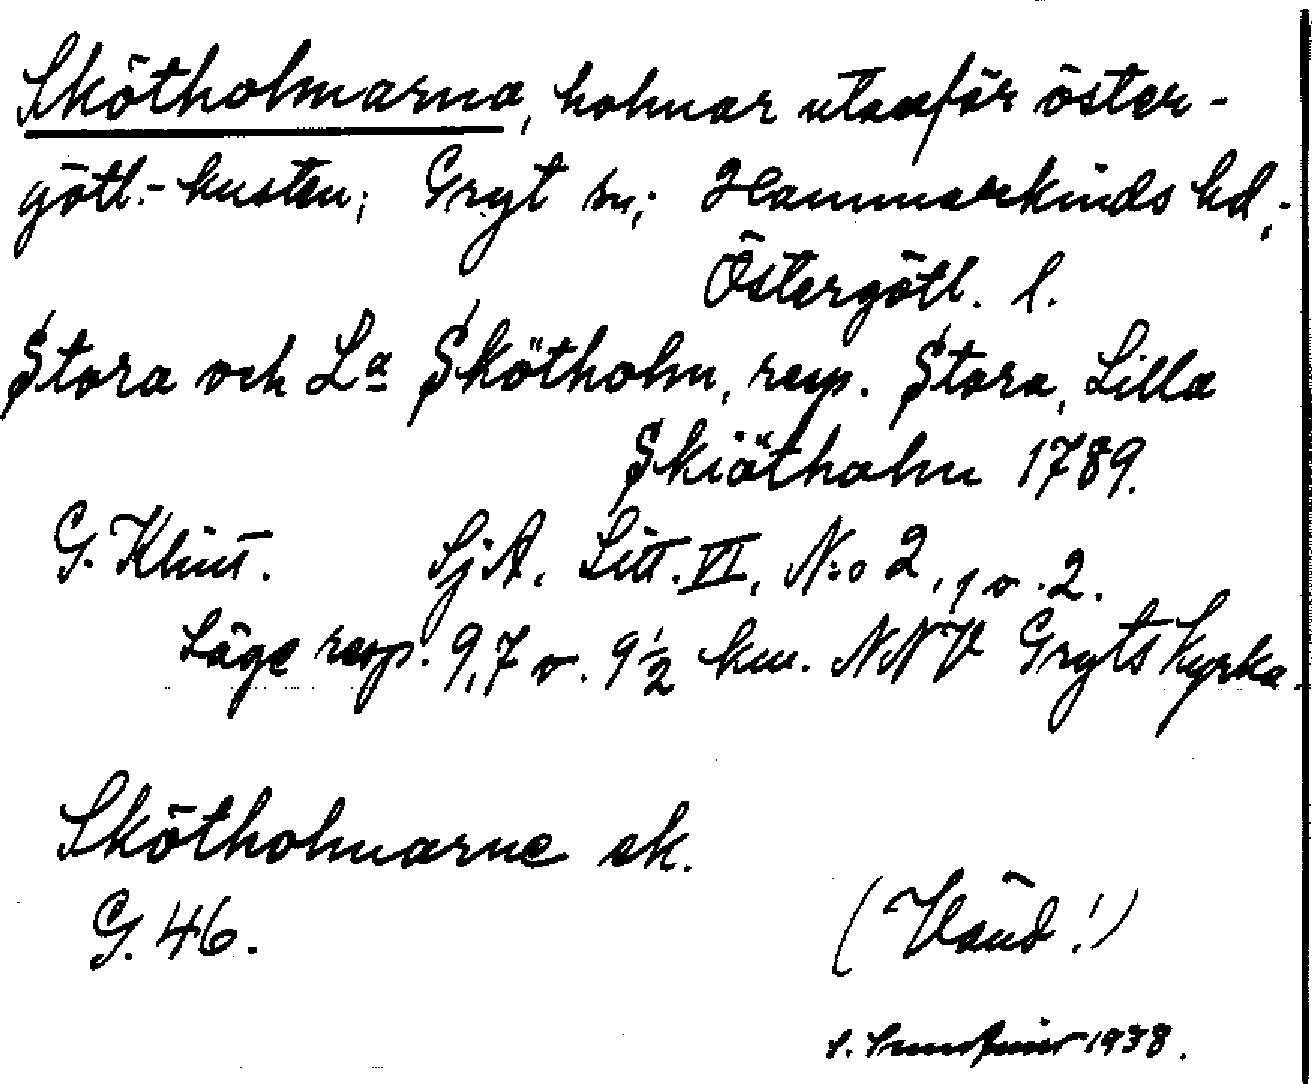 Skötholmarna, holmar utanför öster-
götl.-kusten; Gryt sn; Hammarkinds hd,-
Östergötl. l.
Stora och La Skötholm, resp. Stora, Lilla
Skiötholm 1789.
G. Klint. SjA. Litt. VI, N:o 2, 1 o. 2.
Läge resp. 9,7 o. 9½ km. NNV Gryts kyrka.
Skötholmarne ek.
G. 46.
(Vänd!)
S. 1938.